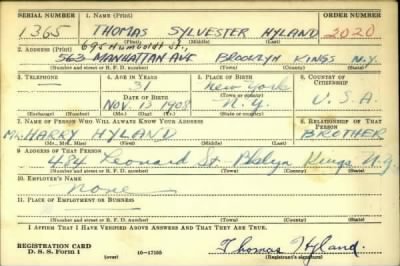 SERIAL NUMBER 1. NAME (Print) ORDER NUMBER
1365 THOMAS SYLVESTER HYLAND 2020
(First) (Middle) (Last)
2. ADDRESS (Print) 695 Humboldt St,
563 MANHATTAN AVE BROOKLYN KINGS N.Y.
(Number and street or R. F. D. number) (Town) (County) (State)
3. TELEPHONE 4. AGE IN YEARS 5. PLACE OF BIRTH 6. COUNTRY OF CITIZENSHIP
— 31 New York
(Town or county)
DATE OF BIRTH
NOV. 13 1908 N.Y. U.S.A.
(Exchange) (Number) (Mo.) (Day) (Yr.) (State or country)
7. NAME OF PERSON WHO WILL ALWAYS KNOW YOUR ADDRESS 8. RELATIONSHIP OF THAT PERSON
Mr. HARRY HYLAND BROTHER
(Mr., Mrs., Miss) (First) (Middle) (Last)
9. ADDRESS OF THAT PERSON
484 Leonard St. Bklyn Kings N.Y.
(Number and street or R. F. D. number) (Town) (County) (State)
10. EMPLOYER'S NAME
None
11. PLACE OF EMPLOYMENT OR BUSINESS
—
(Number and street or R. F. D. number) (Town) (County) (State)
I AFFIRM THAT I HAVE VERIFIED ABOVE ANSWERS AND THAT THEY ARE TRUE.
REGISTRATION CARD
D. S. S. Form 1 (over) 16—17105 Thomas Hyland.
(Registrant's signature)